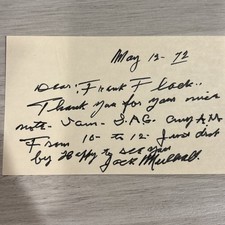 May 13-72
Dear: Frank Flack..
Thank you for your nice
note - I am - S.A.G. any A.M.
From 10- to 12. Just drop
by Happy to see you
Jack Mulhall.